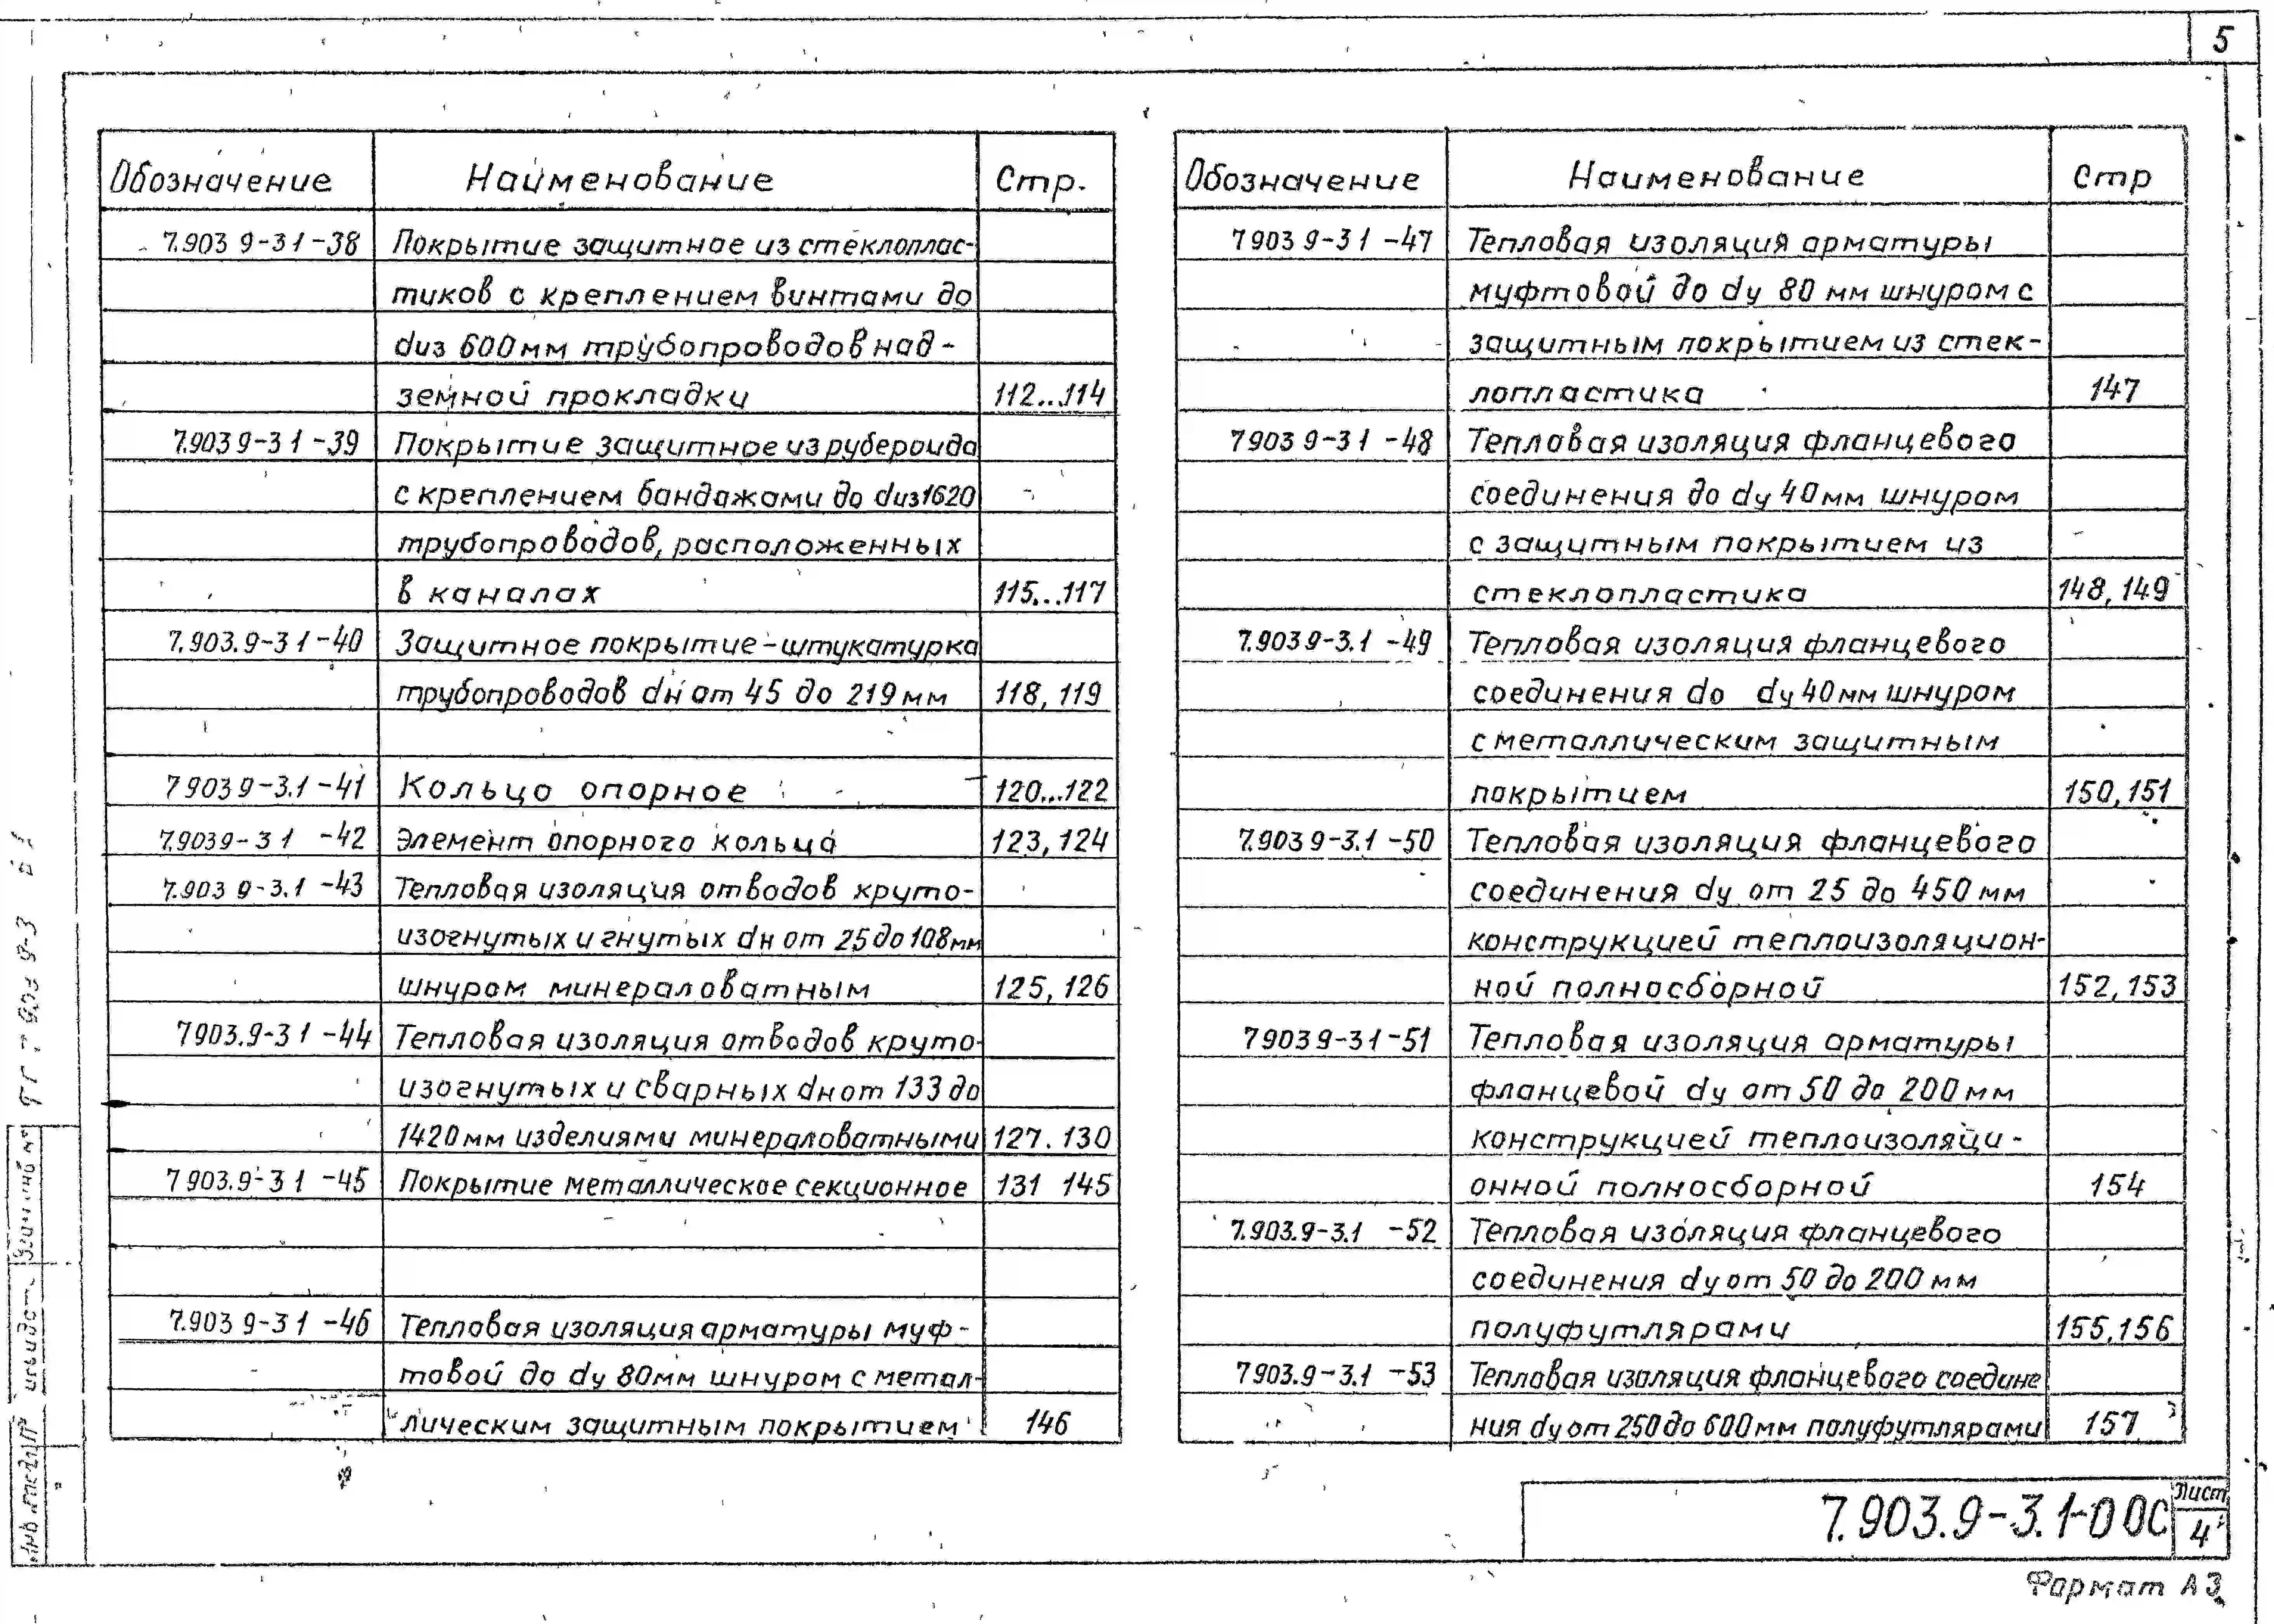 5
Обозначение Наименование Стр.
7.903 9-3 1 -38 Покрытие защитное из стеклоплас-
тиков с креплением винтами до
dиз 600мм трубопроводов над-
земной прокладки 112...114
7.903 9-3 1 -39 Покрытие защитное из рубероида
с креплением бандажами до dиз1620
трубопроводов, расположенных
в каналах 115...117
7.903.9-3 1 -40 Защитное покрытие-штукатурка
трубопроводов dн от 45 до 219мм 118, 119
7 903 9-3.1 -41 Кольцо опорное 120...122
7.903 9-3 1 -42 Элемент опорного кольца 123, 124
7.903 9-3.1 -43 Тепловая изоляция отводов круто-
изогнутых и гнутых dн от 25 до 108мм
шнуром минераловатным 125, 126
7903.9-3 1 -44 Тепловая изоляция отводов круто-
изогнутых и сварных dн от 133 до
1420мм изделиями минераловатными 127. 130
7 903.9-3 1 -45 Покрытие металлическое секционное 131 145
7.903 9-3 1 -46 Тепловая изоляция арматуры муф-
товой до dу 80мм шнуром с метал-
лическим защитным покрытием 146
Обозначение Наименование Стр
7 903 9-3 1 -47 Тепловая изоляция арматуры
муфтовой до dу 80 мм шнуром с
защитным покрытием из стек-
лопластика 147
7 903 9-3 1 -48 Тепловая изоляция фланцевого
соединения до dу 40мм шнуром
с защитным покрытием из
стеклопластика 148, 149
7.903 9-3.1 -49 Тепловая изоляция фланцевого
соединения до dу 40мм шнуром
с металлическим защитным
покрытием 150, 151
7.903 9-3.1 -50 Тепловая изоляция фланцевого
соединения dу от 25 до 450мм
конструкцией теплоизоляцион-
ной полносборной 152, 153
7 903 9-3 1 -51 Тепловая изоляция арматуры
фланцевой dу от 50 до 200мм
конструкцией теплоизоляци-
онной полносборной 154
7.903.9-3.1 -52 Тепловая изоляция фланцевого
соединения dу от 50 до 200мм
полуфутлярами 155, 156
7903.9-3.1 -53 Тепловая изоляция фланцевого соедине
ния dу от 250 до 600мм полуфутлярами 157
7.903.9-3.1-00С
Лист
4
Формат А3